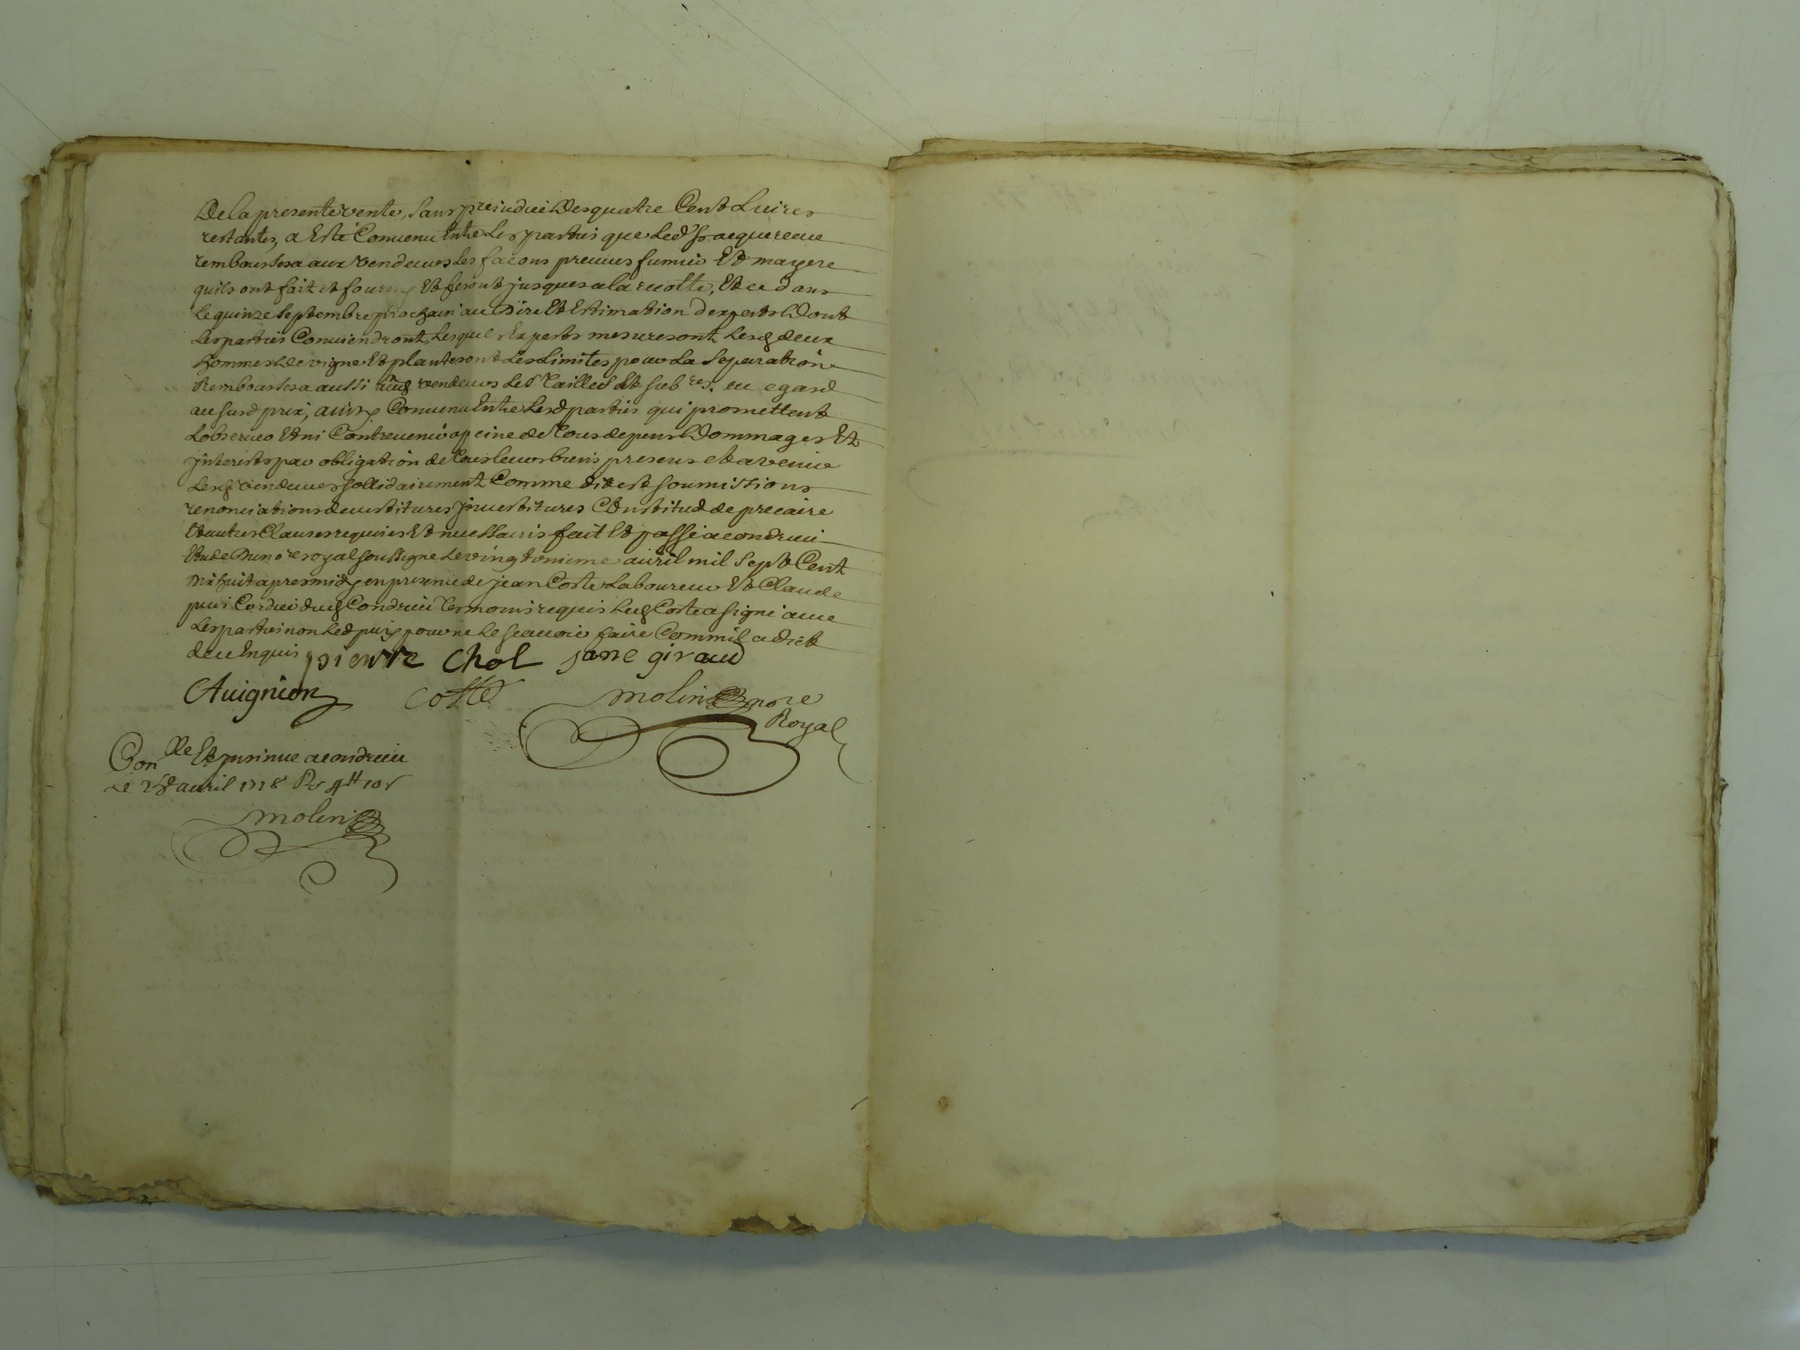 De la presente vente, sans preiudice Des quatre Cent Livres
restantes, a Esté Convenu Entre Les parties que Led Sr acquereur
remboursera aux Vendeurs Les facons preuues fumier Et mayere
quils ont fait et fourny Et feront jusques a la recolte, Et ce dans
Le quinze Septembre prochain au Dire Et Estimation dexperts Dont
Les parties Conviendront, Lesquels Experts mesureront Lesd deux
hommes De vigne Et planteront Les Limites pour La Separation
Remboursera aussi auxd vendeurs Les Tailles Et sub res, eu egard
au susd prix, ainsy Convenu Entre Lesd parties qui promettent
Lobserver Et ni Contrevenir a peine de Tous depens Dommages Et
Interests par obligation de Tous leurs biens presens et avenir
Lesd Vendeurs sollidairement Comme dit est soumissions
renonciations devestitures Jnvestitures Constitud de precaire
Et autres Clauses requises Et necessaires fait Et passé a condrieu
Etude Du no re royal soussigne Le vingt unieme auril mil Sept Cent
Dix huit apres midy en presence de jean Coste Laboureur Et Claude
puis Cordier dud Condrieu Temoins requis Led Coste a signé avec
Les parties non Led puis pour ne Le scavoir faire Comme il a dict
de ce Enquis pierre Chol jane giraud
Avignion Coste molin no re
Royal
Con lle Et Jnsinue a condrieu
Le 28 auril 1718 Rs 4 tt 10 s
molin